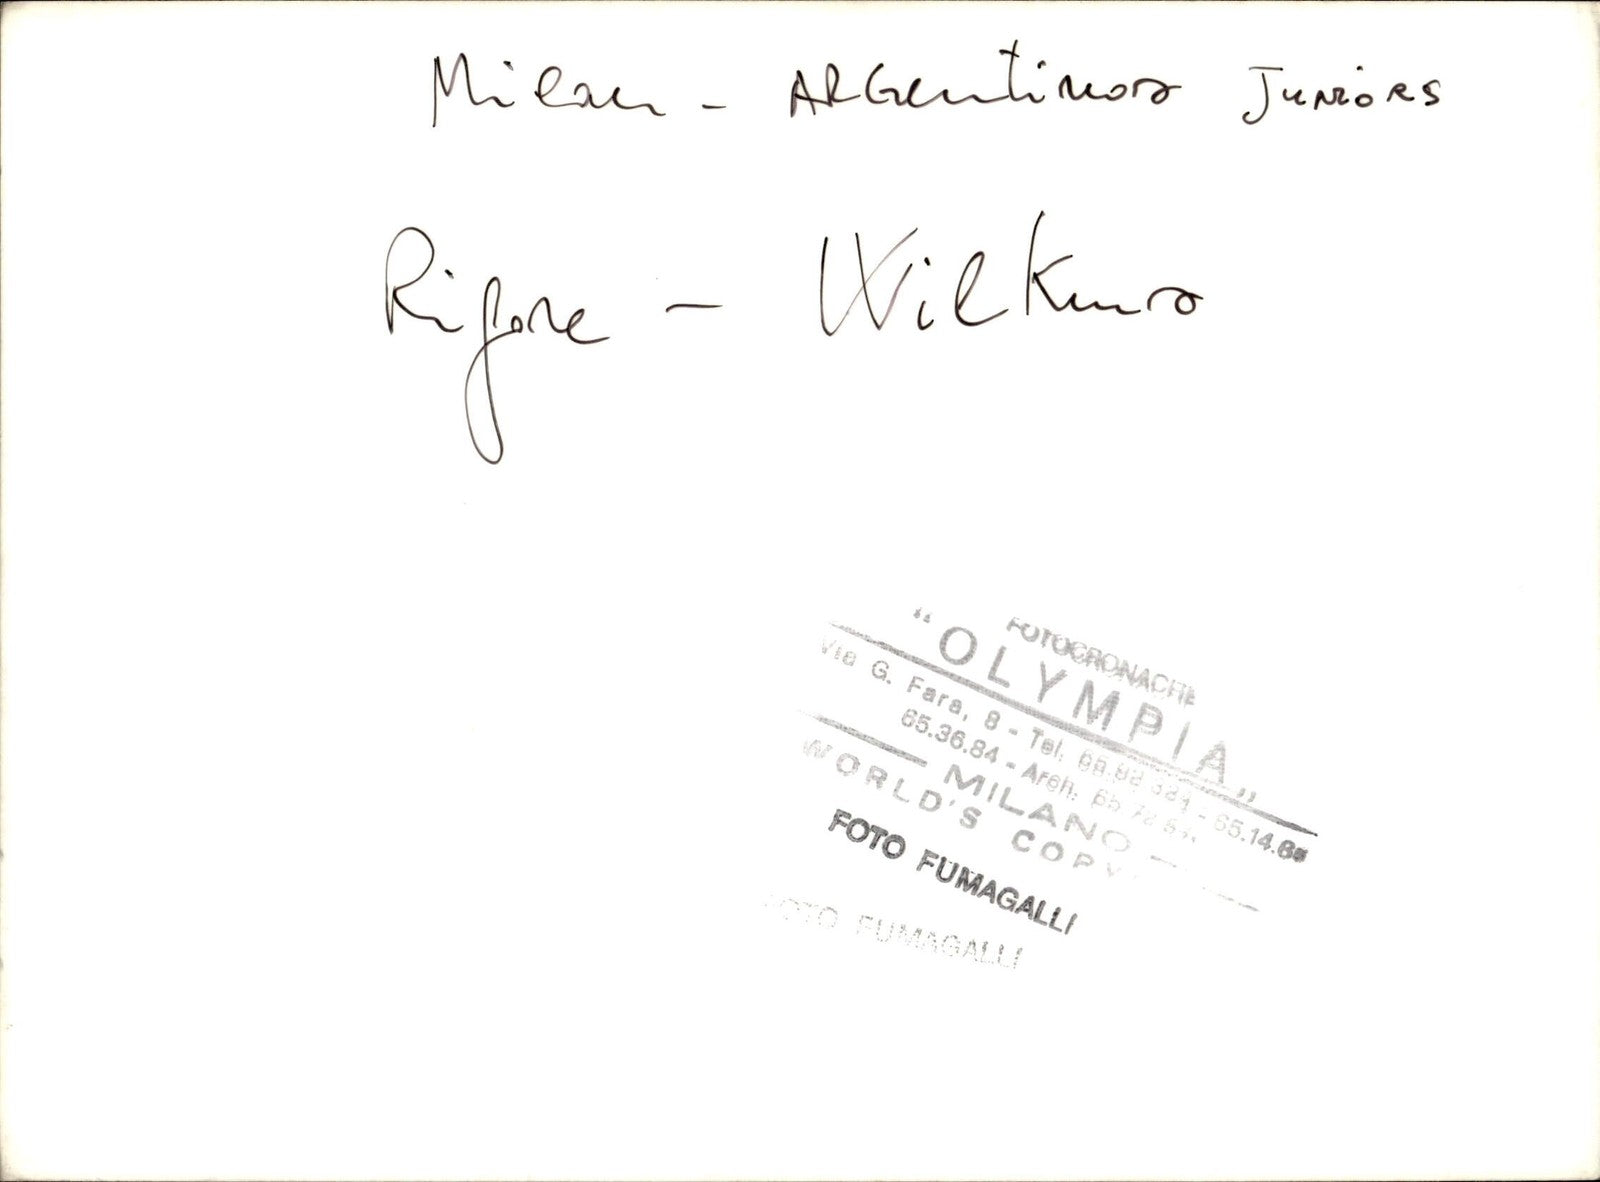 Milan - ARGentinos Juniors
Rigore - Wilkins
FOTOCRONACHE
"OLYMPIA"
Via G. Fara, 8 - Tel. - 65.14.66
65.36.84 - Arch.
MILANO
WORLD'S COPY
FOTO FUMAGALLI
FOTO FUMAGALLI